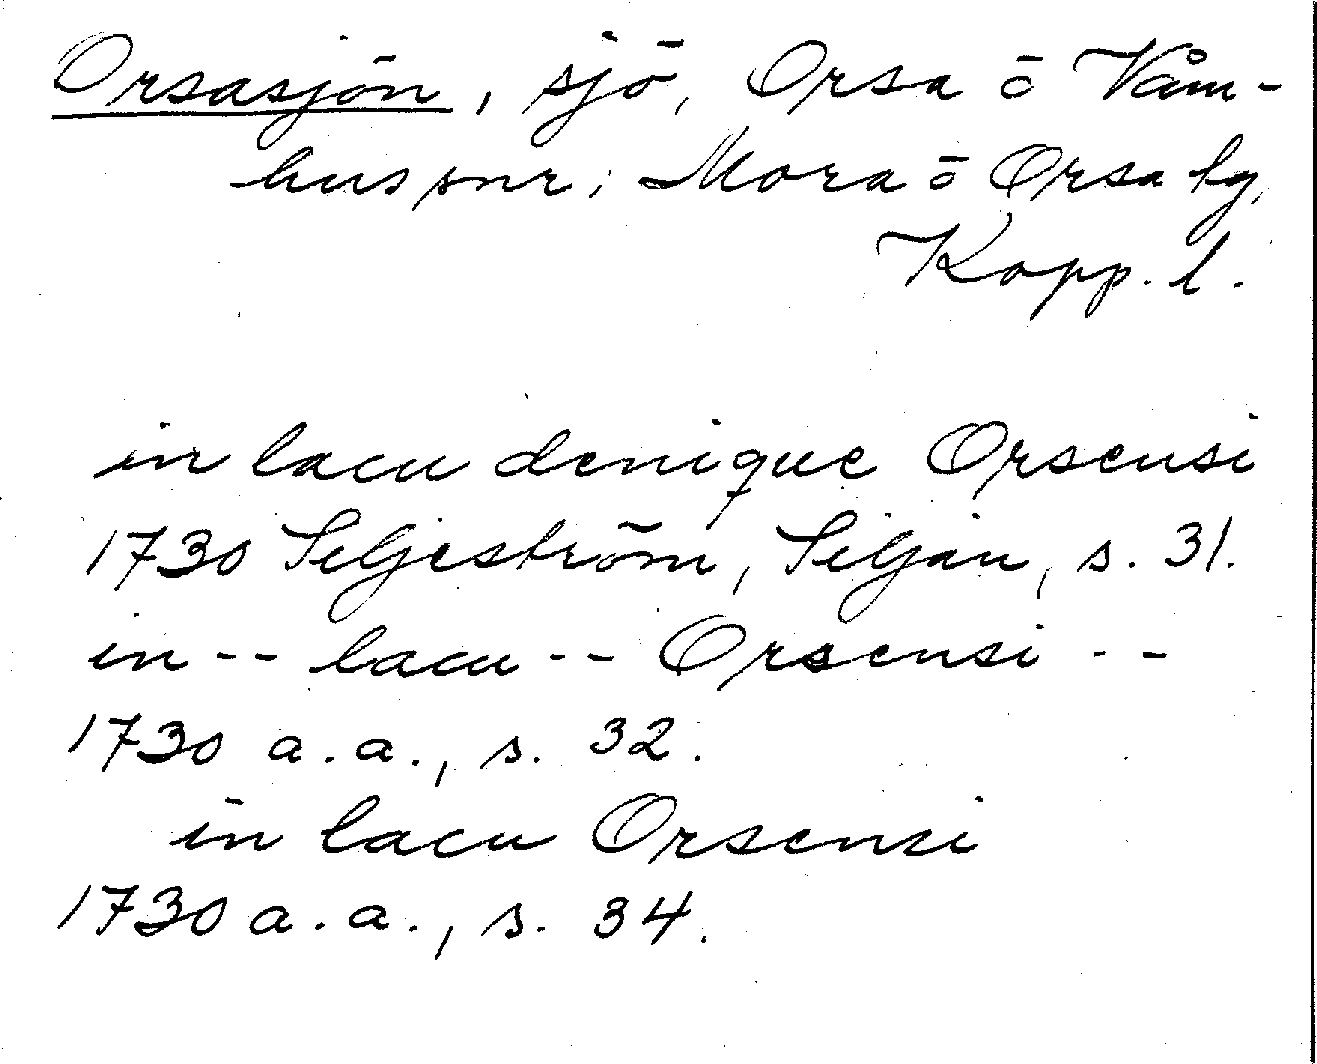 Orsasjön, sjö, Orsa o Våm-
hus snr; Mora o Orsa tg,
Kopp. l.
in lacu denique Orsensi
1730 Seljeström, Siljan, s. 31.
in -- lacu -- Orsensi --
1730 a.a., s. 32.
in lacu Orsensi
1730 a.a., s. 34.